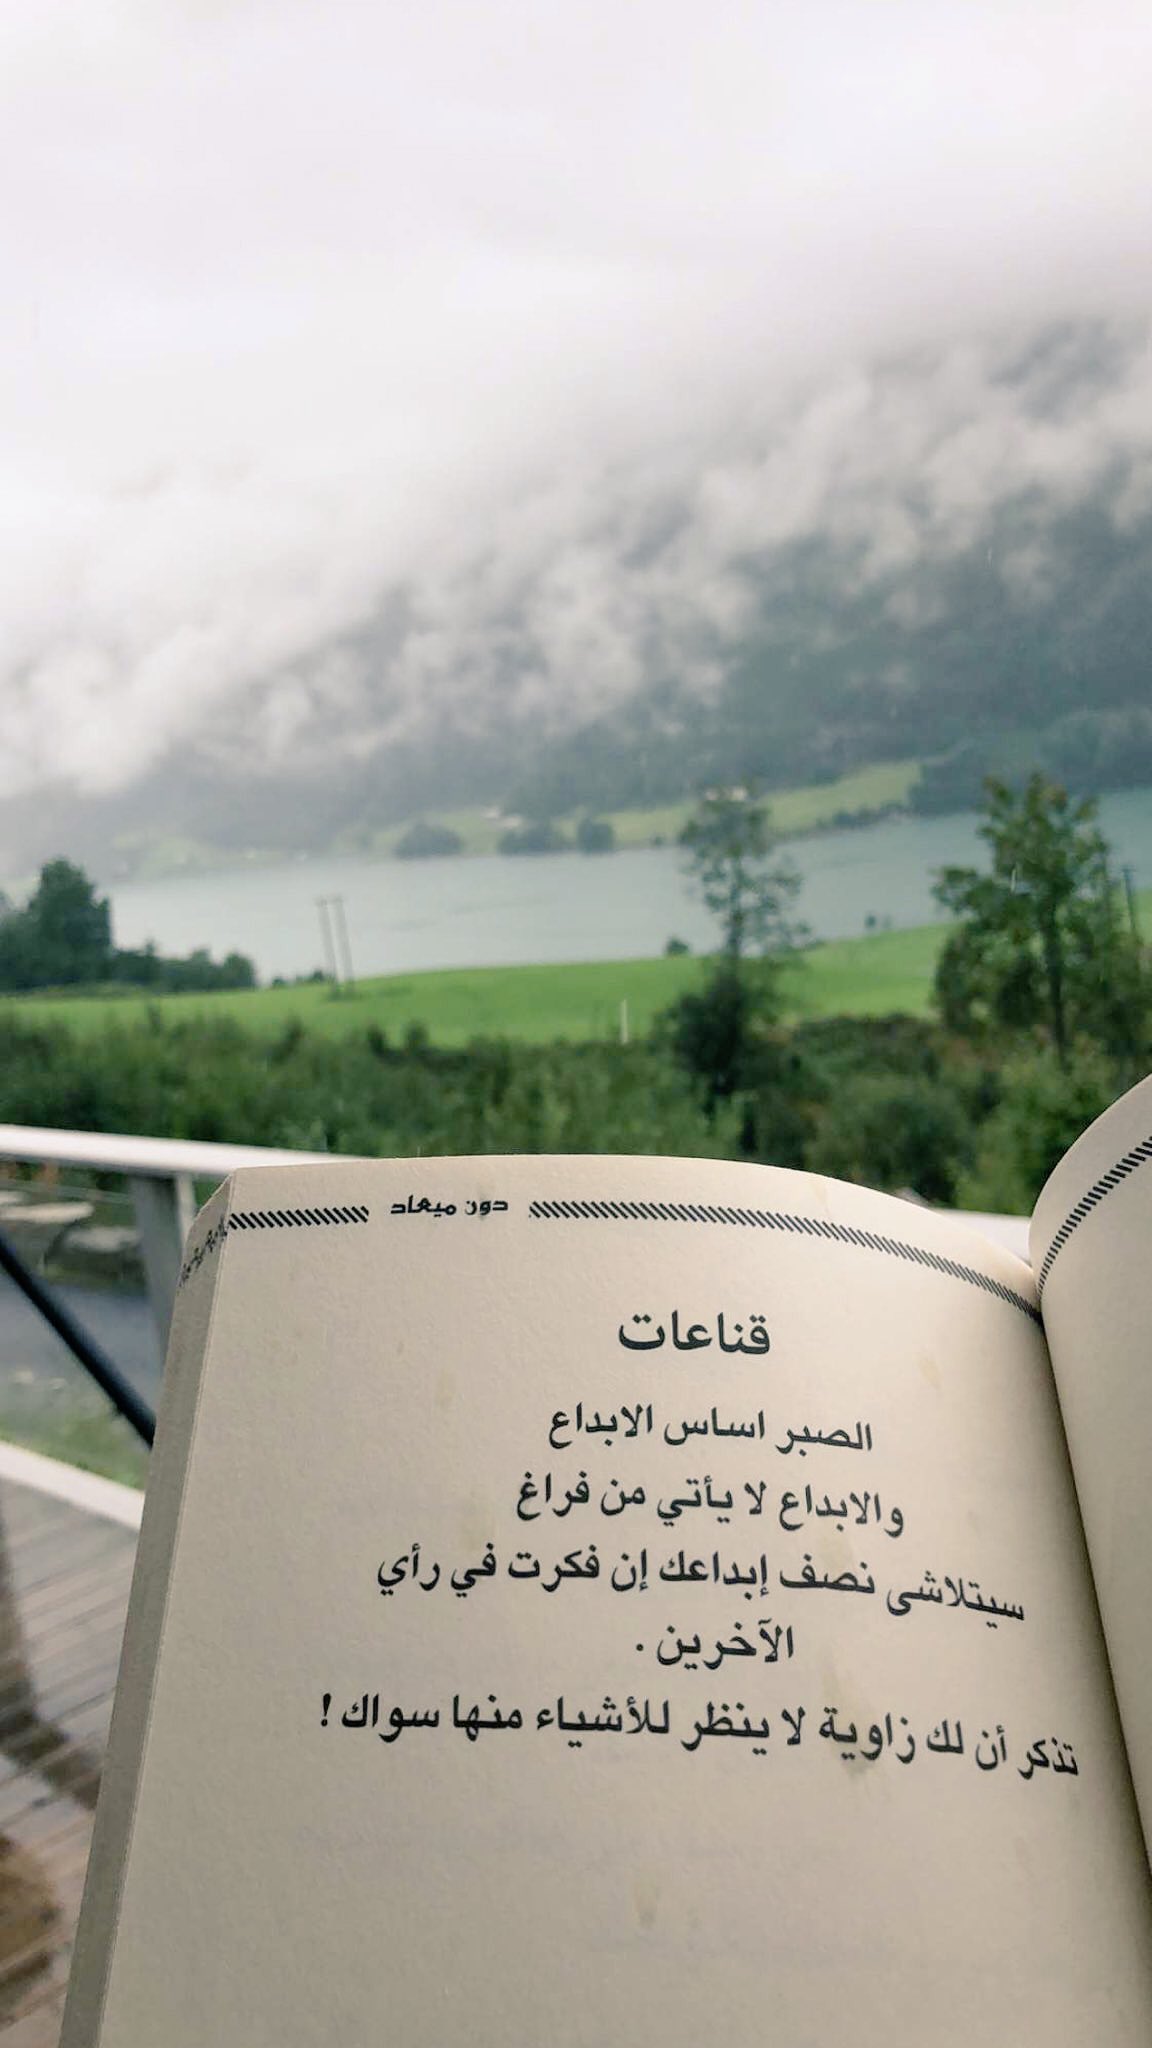 دون ميعاد
قناعات
الصبر اساس الابداع
والابداع لا يأتي من فراغ
سيتلاشى نصف إبداعك إن فكرت في رأي
الآخرين .
تذكر أن لك زاوية لا ينظر للأشياء منها سواك !